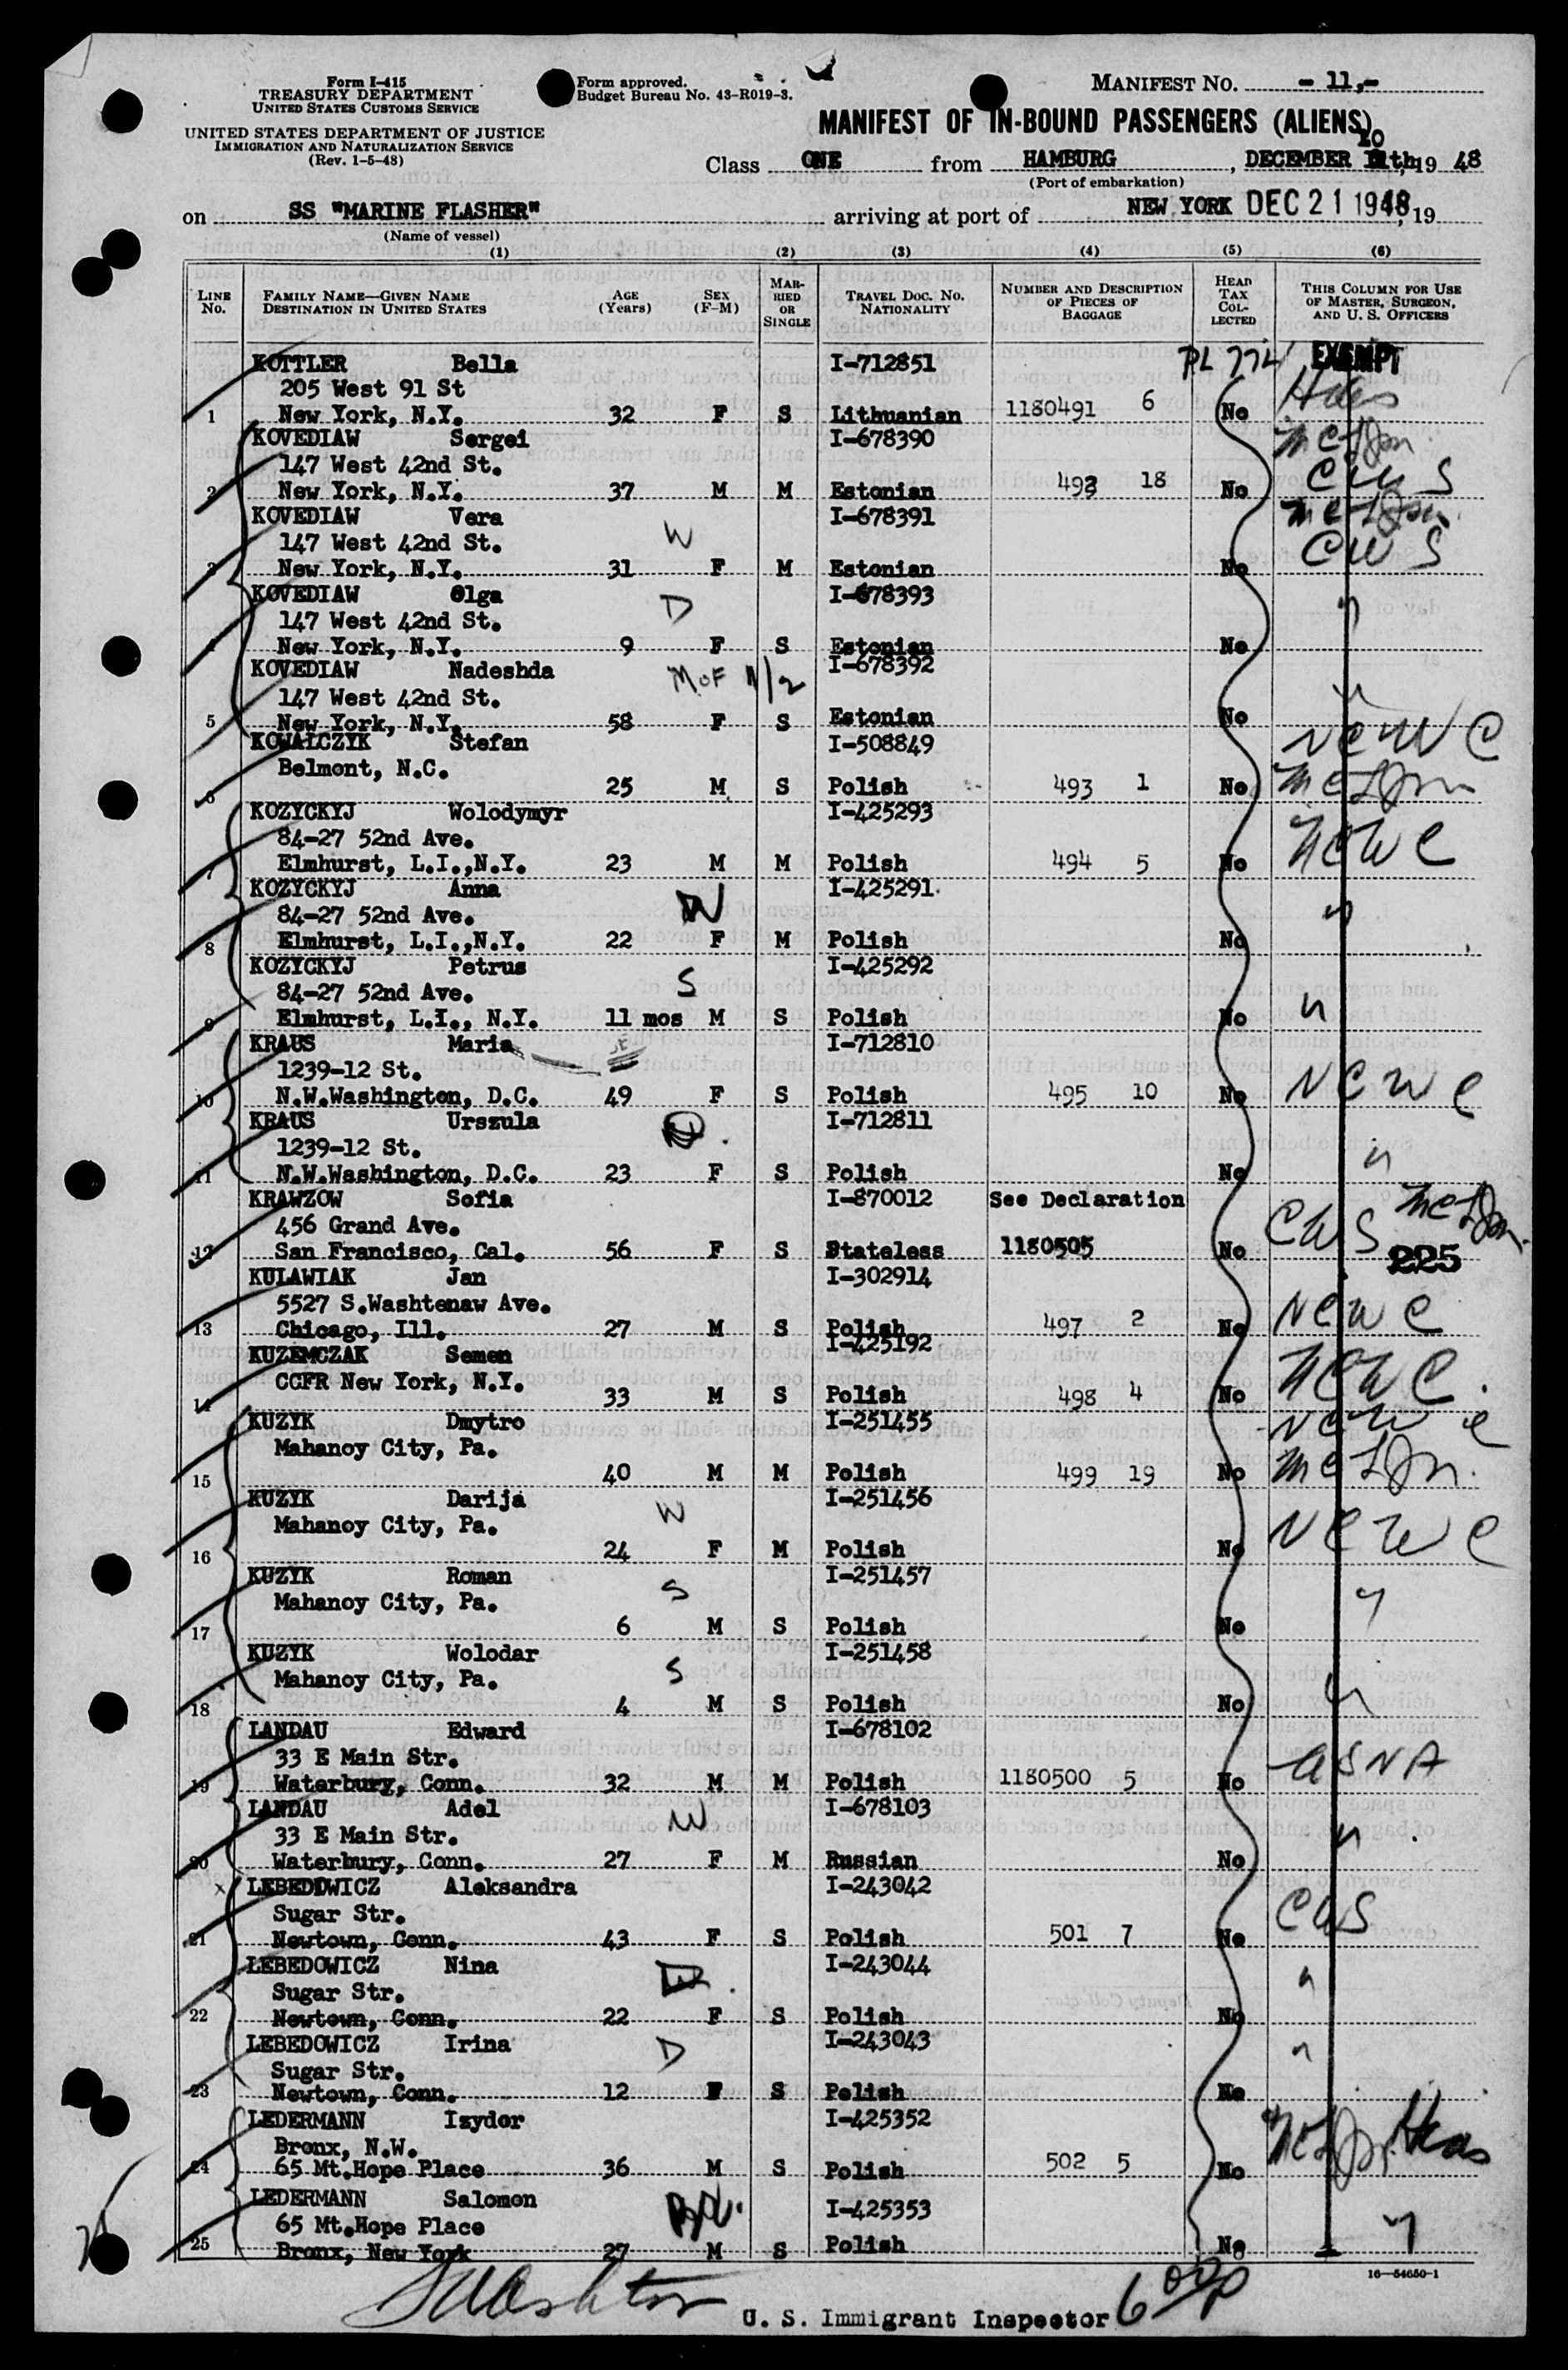 Form I-415
TREASURY DEPARTMENT
UNITED STATES CUSTOMS SERVICE
UNITED STATES DEPARTMENT OF JUSTICE
IMMIGRATION AND NATURALIZATION SERVICE
(Rev. 1-5-48)
Form approved.
Budget Bureau No. 43-R019-3.
MANIFEST NO. - 11,-
MANIFEST OF IN-BOUND PASSENGERS (ALIENS)
Class ONE from HAMBURG, DECEMBER 19 48
(Port of embarkation)
on SS "MARINE FLASHER" arriving at port of NEW YORK DEC 21 1948, 19
(Name of vessel)
(1) (2) (3) (4) (5) (6)
LINE No. FAMILY NAME—GIVEN NAME DESTINATION IN UNITED STATES AGE (Years) SEX (F-M) MARRIED OR SINGLE TRAVEL DOC. NO. NATIONALITY NUMBER AND DESCRIPTION OF PIECES OF BAGGAGE HEAD TAX COLLECTED THIS COLUMN FOR USE OF MASTER, SURGEON, AND U. S. OFFICERS
KOTTLER Bella I-712851 PL 774 EXEMPT
205 West 91 St
1 New York, N.Y. 32 F S Lithuanian 1180491 6 No
KOVEDIAW Sergei I-678390
147 West 42nd St.
2 New York, N.Y. 37 M M Estonian 492 18 No CWS
KOVEDIAW Vera I-678391
147 West 42nd St. W
3 New York, N.Y. 31 F M Estonian No CWS
KOVEDIAW Olga I-678393
147 West 42nd St. D
4 New York, N.Y. 9 F S Estonian No
KOVEDIAW Nadeshda I-678392
147 West 42nd St. M OF
5 New York, N.Y. 58 F S Estonian No
KOWALCZYK Stefan I-508849 NCWC
Belmont, N.C.
6 25 M S Polish 493 1 No
KOZYCKYJ Wolodymyr I-425293
84-27 52nd Ave.
7 Elmhurst, L.I.,N.Y. 23 M M Polish 494 5 No NCWC
KOZYCKYJ Anna I-425291
84-27 52nd Ave. W
8 Elmhurst, L.I.,N.Y. 22 F M Polish No
KOZYCKYJ Petrus I-425292
84-27 52nd Ave. S
9 Elmhurst, L.I., N.Y. 11 mos M S Polish No
KRAUS Maria I-712810
1239-12 St.
10 N.W.Washington, D.C. 49 F S Polish 495 10 No NCWC
KRAUS Urszula I-712811
1239-12 St. D
11 N.W.Washington, D.C. 23 F S Polish No
KRAWZOW Sofia I-870012 See Declaration
456 Grand Ave. CWS
12 San Francisco, Cal. 56 F S Stateless 1180505 No 225
KULAWIAK Jan I-302914
5527 S.Washtenaw Ave.
13 Chicago, Ill. 27 M S Polish 497 2 No NCWC
KUZEMCZAK Semen I-425192
CCFR New York, N.Y.
14 33 M S Polish 498 4 No NCWC
KUZYK Dmytro I-251455 NCWC
Mahanoy City, Pa.
15 40 M M Polish 499 19 No
KUZYK Darija I-251456
Mahanoy City, Pa. W
16 24 F M Polish No NCWC
KUZYK Roman I-251457
Mahanoy City, Pa. S
17 6 M S Polish No
KUZYK Wolodar I-251458
Mahanoy City, Pa. S
18 4 M S Polish No
LANDAU Edward I-678102
33 E Main Str.
19 Waterbury, Conn. 32 M M Polish 1180500 5 No USNA
LANDAU Adel I-678103
33 E Main Str. W
20 Waterbury, Conn. 27 F M Russian No
LEBEDOWICZ Aleksandra I-243042
Sugar Str. CWS
21 Newtown, Conn. 43 F S Polish 501 7 No
LEBEDOWICZ Nina I-243044
Sugar Str. D
22 Newtown, Conn. 22 F S Polish No
LEBEDOWICZ Irina I-243043
Sugar Str. D
23 Newtown, Conn. 12 F S Polish No
LEDERMANN Izydor I-425352
Bronx, N.W.
24 65 Mt.Hope Place 36 M S Polish 502 5 No
LEDERMANN Salomon I-425353
65 Mt.Hope Place
25 Bronx, New York 27 M S Polish No
16—54650-1
U. S. Immigrant Inspector